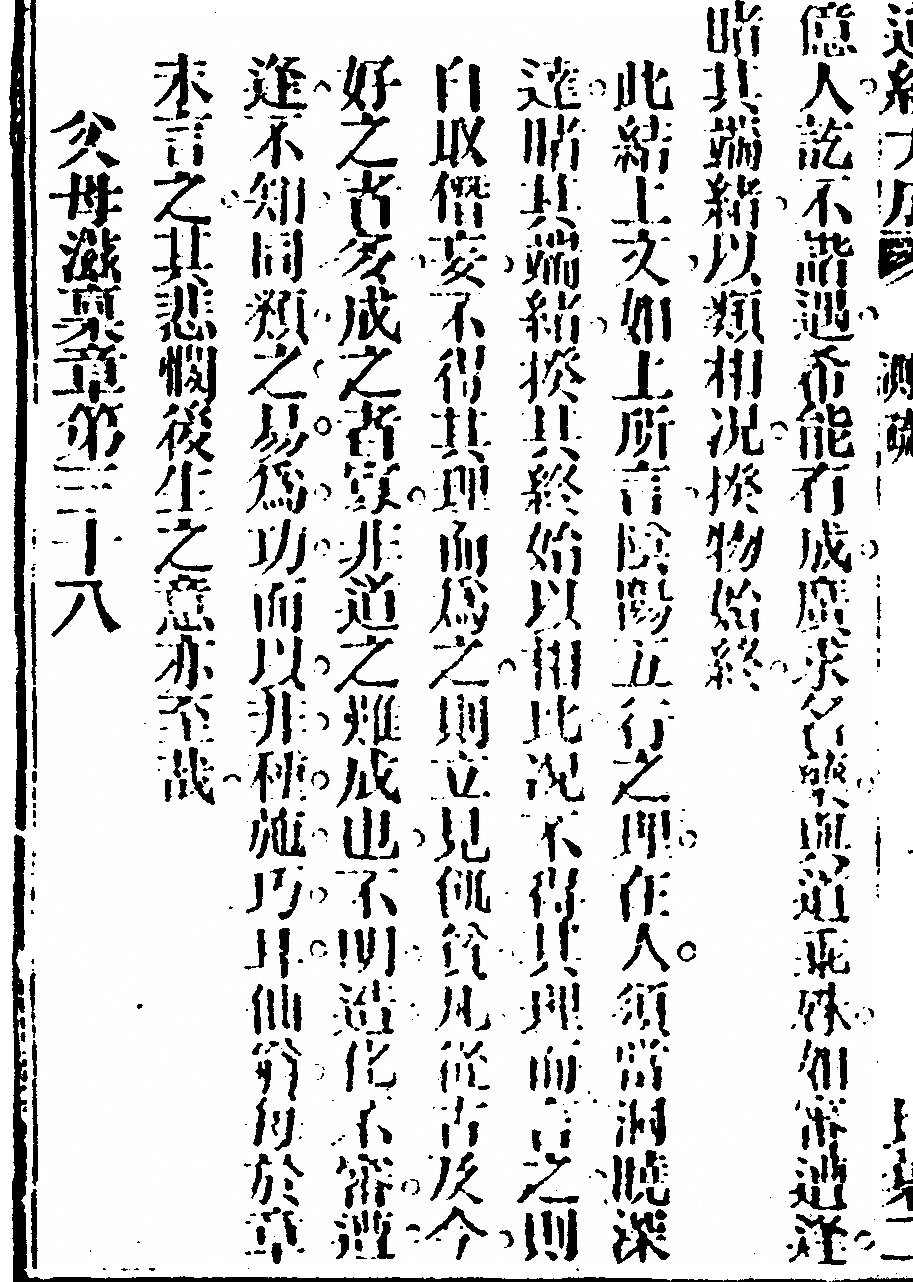 億人訖不諧遇希能有成廣求名藥與道乖殊如審遭逢
睹其端緒以類相況揆物始終
此結上文如上所言陰陽五行之理在人須當洞曉深
達睹其端緒揆其終始以相比況不得其理而言之則
自取僭妄不得其理而爲之則立見傾貧凡從古及今
好之者多成之者寡非道之難成也不明造化不審遭
逢不知同類之易爲功而以非種施巧耳仙翁每於章
末言之其悲憫後生之意亦至哉
父母滋稟章第三十八